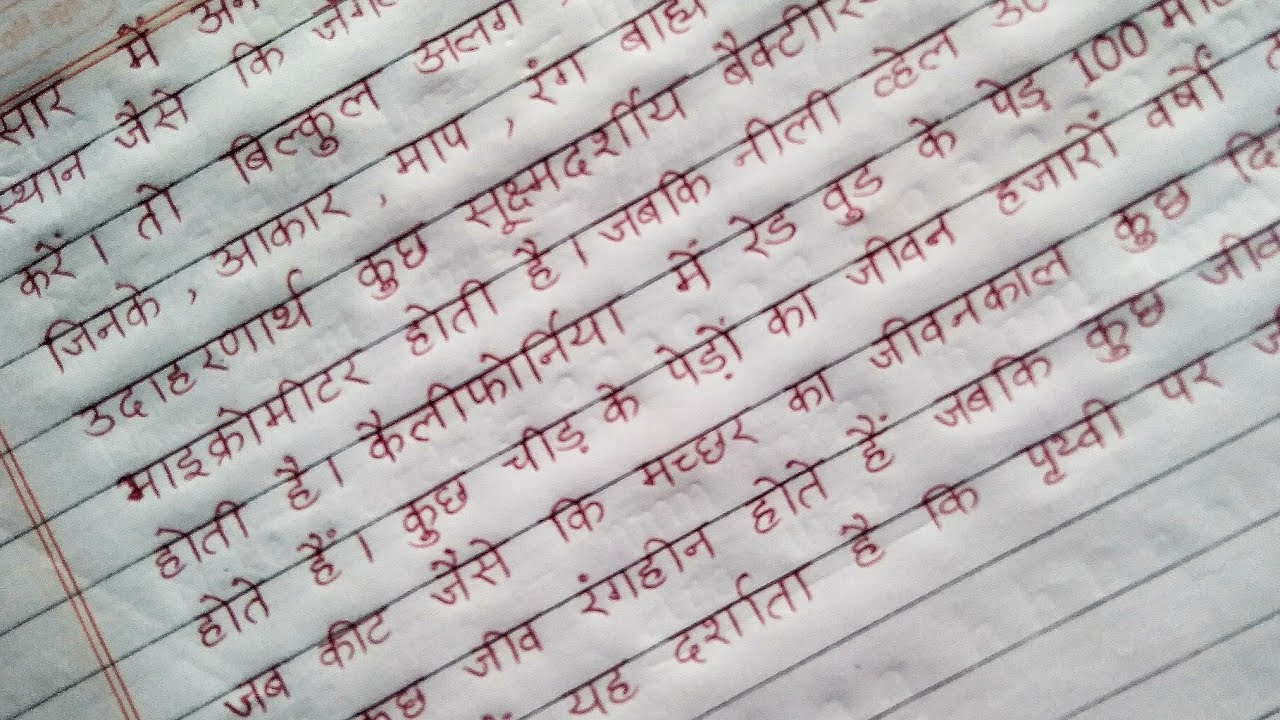 सार में
स्थान जैसे कि
करें। तो बिल्कुल अलग
जिनके, आकार, माप, रंग बाह्य
उदाहरणार्थ कुछ सूक्ष्मदर्शीय
माइक्रोमीटर होती है। जबकि नीली व्हेल
होती है। कैलीफोर्निया में रेड वुड के पेड़ 100
होते हैं। कुछ चीड़ के पेड़ों का जीवन हजारों वर्षों
जब कीट जैसे कि मच्छर का जीवनकाल कुछ
कुछ जीव रंगहीन होते हैं जबकि कुछ जीव
यह दर्शाता है कि पृथ्वी पर